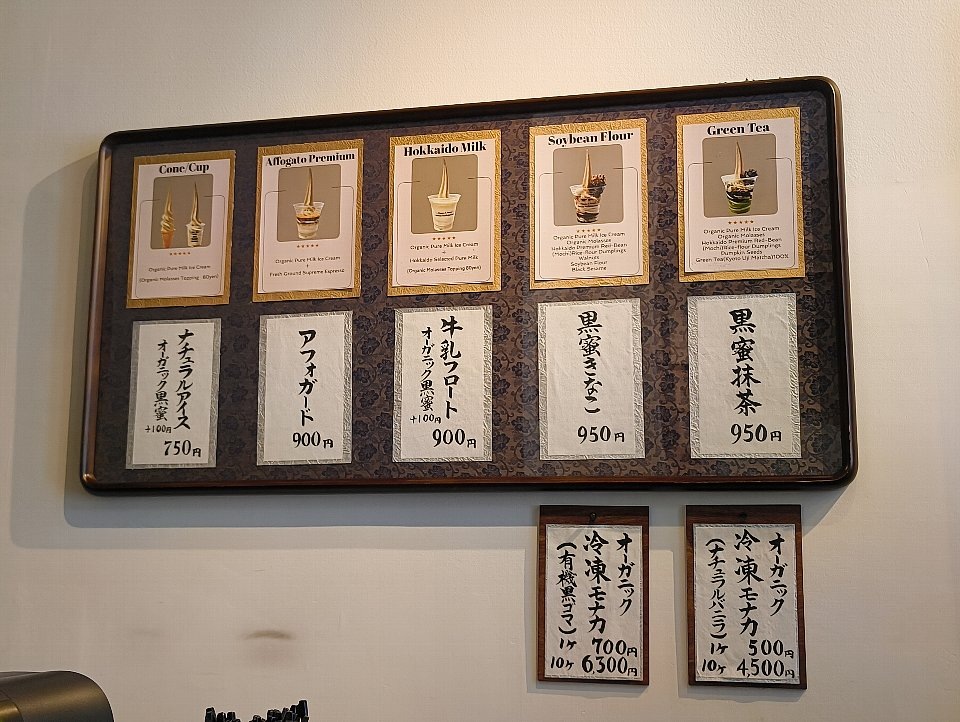 Cone/Cup
★★★★★
Organic Pure Milk Ice Cream
(Organic Molasses Topping 80yen)
Affogato Premium
★★★★★
Organic Pure Milk Ice Cream
Fresh Ground Supreme Espresso
Hokkaido Milk
★★★★★
Organic Pure Milk Ice Cream
Hokkaido Selected Pure Milk
(Organic Molasses Topping 80yen)
Soybean Flour
★★★★★
Organic Pure Milk Ice Cream
Organic Molasses
Hokkaido Premium Red-Bean
(Mochi)Rice-flour Dumplings
Walnuts
Soybean Flour
Black Sesame
Green Tea
★★★★★
Organic Pure Milk Ice Cream
Organic Molasses
Hokkaido Premium Red-Bean
(Mochi)Rice-flour Dumplings
Pumpkin Seeds
Green Tea(Kyoto Uji Matcha)100%
ナチュラルアイス
オーガニック黒蜜
+100円
750円
アフォガード
900円
牛乳フロート
オーガニック黒蜜
+100円
900円
黒蜜きなこ
950円
黒蜜抹茶
950円
オーガニック
冷凍モナカ
(有機黒ゴマ)
1ケ 700円
10ケ 6,300円
オーガニック
冷凍モナカ
(ナチュラルバニラ)
1ケ 500円
10ケ 4,500円